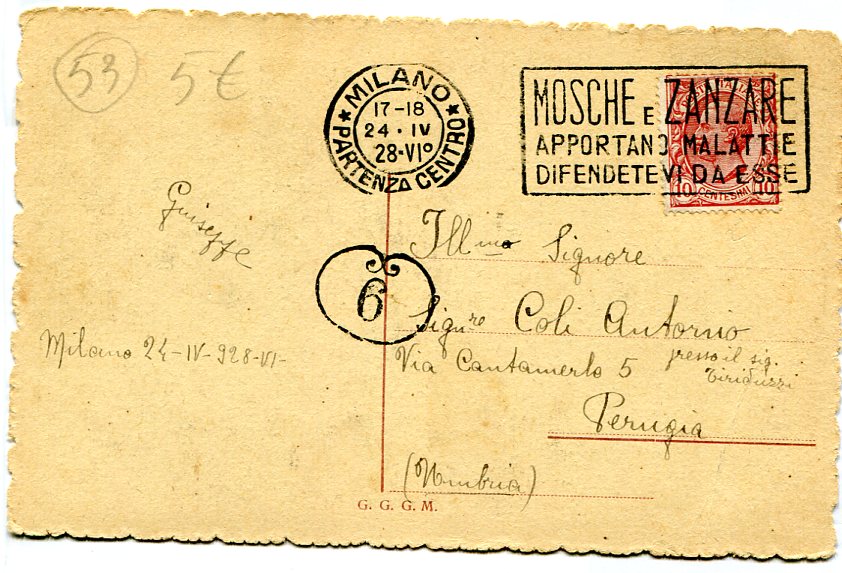 53
5€
MILANO
17-18
24·IV
28·VIº
PARTENZA CENTRO
MOSCHE E ZANZARE
APPORTANO MALATTIE
DIFENDETEVI DA ESSE
10 CENTESIMI 10
Giuseppe
Milano 24-IV-928-VI-
6
Ill.mo Signore
Sigre Coli Antonio
Via Cantamerlo 5
presso il sig.
Tiriduzzi
Perugia
(Umbria)
G. G. G. M.